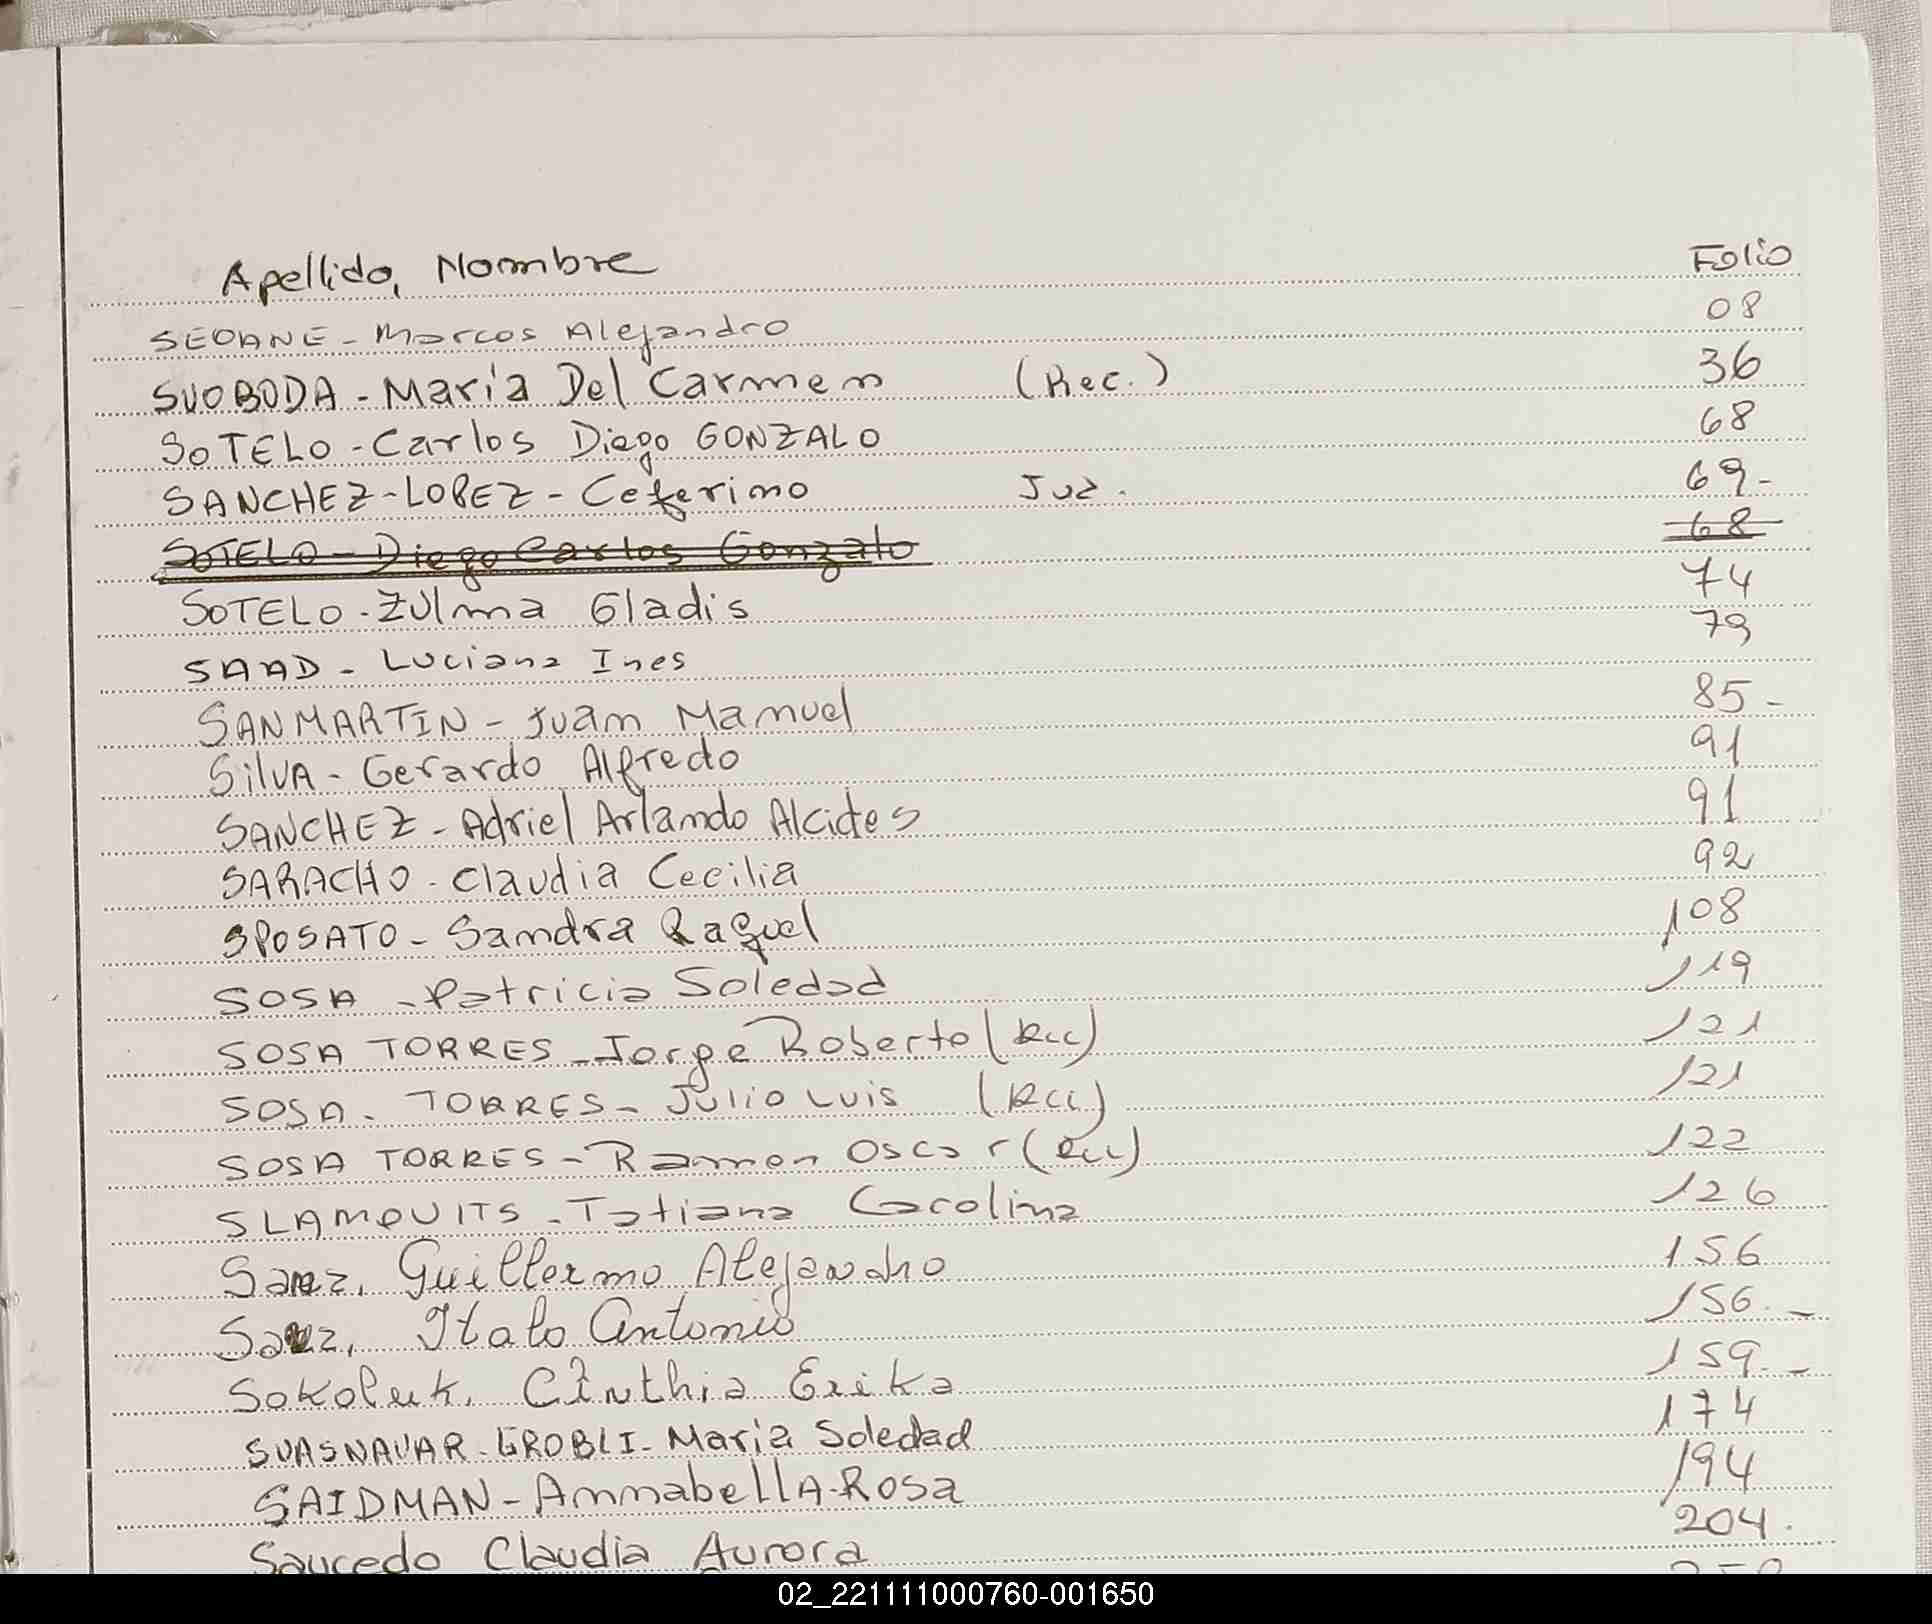 Apellido, Nombre Folio
SEOANE - Marcos Alejandro 08
SVOBODA - María Del Carmen (Rec.) 36
SOTELO - Carlos Diego GONZALO 68
SANCHEZ - LOPEZ - Ceferino Juz. 69-
SOTELO - Diego Carlos Gonzalo 68
SOTELO - Zulma Gladis 74
SAAD - Luciana Ines 79
SANMARTIN - Juan Manuel 85-
SilVA - Gerardo Alfredo 91
SANCHEZ - Adriel Arlando Alcides 91
SARACHO - Claudia Cecilia 92
SPOSATO - Sandra Raquel 108
SOSA - Patricia Soledad 119
SOSA TORRES - Jorge Roberto (Rec) 121
SOSA - TORRES - Julio Luis (Rec) 121
SOSA TORRES - Ramon Oscar (Rec) 122
Tatiana Carolina 126
Guillermo Alejandro 156
Italo Antonio 156.-
Sokoluk, Cinthia Erika 159.-
SUASNAVAR - GROBLI - Maria Soledad 174
SAIDMAN - AnnabellA - Rosa 194
Saucedo Claudia Aurora 204.
02_221111000760-001650